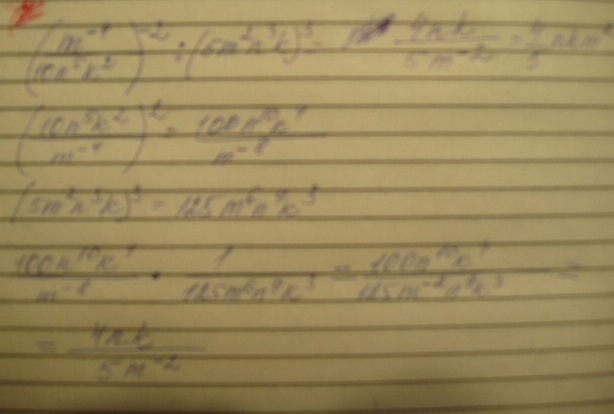 (m^-4 / 10n^5k^2)^-2 : (5m^2n^3k)^3 = 4nk / 5m^-2 = 4/5 nkm^2
(10n^5k^2 / m^-4)^2 = 100n^10k^4 / m^-8
(5m^2n^3k)^3 = 125m^6n^9k^3
100n^10k^4 / m^-8 · 1 / 125m^6n^9k^3 = 100n^10k^4 / 125m^-2n^9k^3 =
= 4nk / 5m^-2